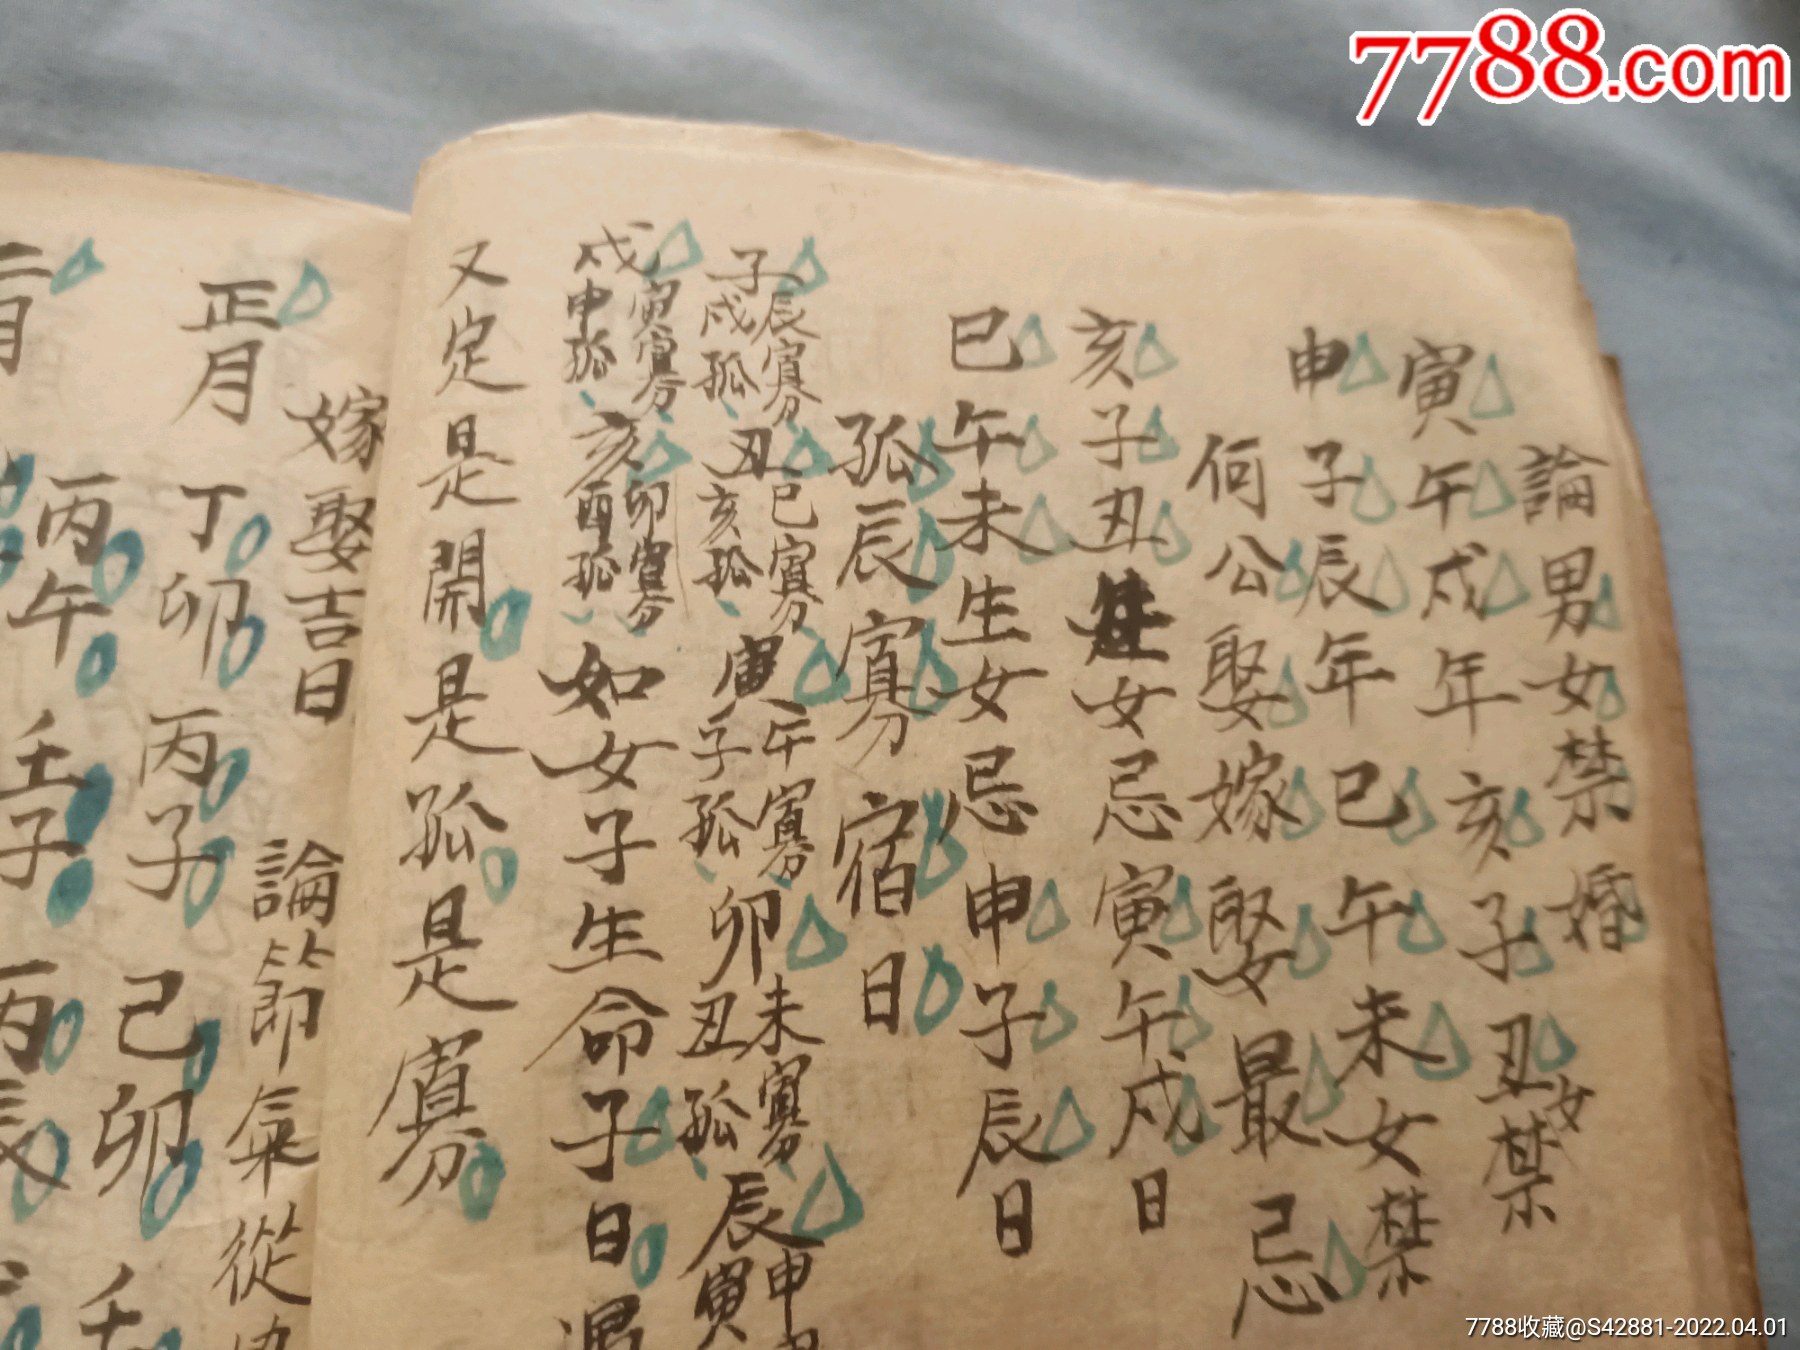 7788.com
論男女禁婚
寅午戌年亥子丑女禁
申子辰年巳午未女禁
何公娶嫁娶最忌
亥子丑生女忌寅午戌日
巳午未生女忌申子辰日
孤辰寡宿日
子辰寡戌孤丑巳寡亥孤寅午寡子孤卯未寡丑孤辰申寅
戌寅寡申孤亥卯寡酉孤如女子生命子日
又定是開是孤是寡
嫁娶吉日
論節氣從
正月丁卯丙子己卯壬
二月丙午壬子丙辰
7788收藏@S42881-2022.04.01